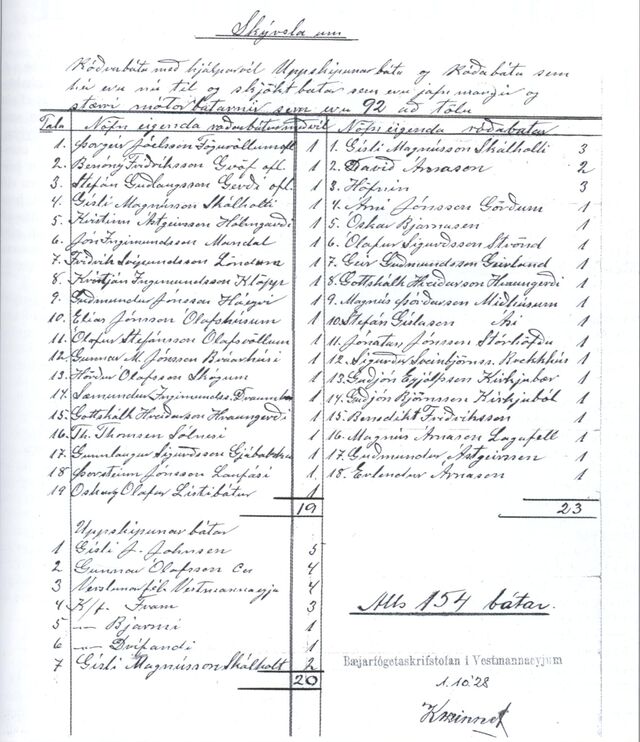 Skýrsla um
Róðrabáta með hjálparvél Uppskipunarbáta og Róðabáta sem
hér eru nú til og skjöktbátar sem eru jafn margir og
stærri mótorbátarnir sem eru 92 að tölu
Tala Nöfn eigenda róðrarbátar með vél
1. Þorgeir Jóelsson Fögruvöllum ofl 1
2. Benóný Friðriksson Gröf ofl. 1
3. Stefán Guðlaugsson Gerði ofl. 1
4. Gísli Magnússon Skálholti 1
5. Kristinn Ástgeirsson Hólmgarði 1
6. Jón Ingimundsson Mandal 1
7. Friðrik Löndum 1
8. Kristján Ingimundsson Klöpp 1
9. Guðmundur Jónsson Háeyri 1
10. Elías Jónsson Olafshúsum 1
11. Olafur Stefánsson Olafsvöllum 1
12. Gunnar M. Jónsson 1
13. Hörður Olafsson Skógum 1
14. Sæmundur Ingimundss. 1
15. Gottskálk Hreiðarson Hraungerði 1
16. Th. Thomsen Sólnesi 1
17. Gunnlaugur Sigurðsson Gjábakka 1
18 Þorsteinn Jónsson Laufási 1.
19 Olafur Listibátur 1
19
Uppskipunar bátar
1 Gísli J. Johnsen 5
2 Gunnar Olafsson Co 4
3 Verslunarfél. Vestmannaeyja 4
4 K/f. Fram 3
5 —"— Bjarmi 1
6 —"— Drífandi 1
7 Gísli Magnússon Skálholt 2
20
Nöfn eigenda róðabátar
1. Gísli Magnússon Skálholti 3
2. Davíð Árnason 2
3. Höfnin 3
4. Árni Jónsson Görðum 1
5. Oskar Bjarnasen 1
6. Olafur Sigurðsson Strönd 1
7. Geir Guðmundsson Geirland 1
8. Gottskálk Hreiðarson Hraungerði 1
9. Magnús Þórðarson Miðhúsum 1
10. Stefán Gíslason Ási 1
11. Jónatan Jónsson Stórhöfða 1
12. Sigurður Sveinbjörnss. 1
13. Guðjón Eyjólfsson Kirkjubær 1
14. Guðjón Björnsson Kirkjuból 1
15. Benedikt Friðriksson 1
16. Magnús Árnason Lagafell 1
17. Guðmundur Ástgeirsson 1
18. Erlendur Árnason 1
23
Alls 154 bátar.
Bæjarfógetaskrifstofan í Vestmannaeyjum
1.10 '28